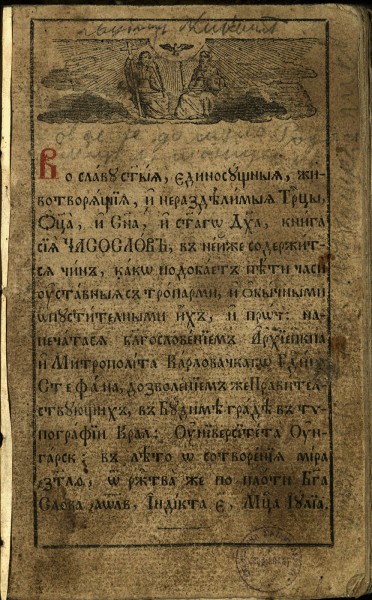 Во славу ст҃ыѧ, є҆диносꙋщныѧ, жи-
вотворѧщїѧ, и҆ нераздѣ́лимыѧ Трⷪ҇цы,
Ѻ҆ц҃а̀, и҆ Сн҃а, и҆ ст҃а́гѡ Дх҃а, книга
сїѧ ЧАСОСЛОВЪ, въ не́йже содержит-
сѧ чинъ, какѡ подоба́етъ пѣ́ти часы̀
ᲂу҆ста́вныѧ с тропарьмѝ, и҆ ѻ҆бы́чными
ѿпусти́телными и҆хъ, и҆ прⷪ҇ч: на-
печатасѧ благослове́нїемъ А҆рхїепⷭ҇кпа
и҆ Митрополі́та Карловачкагѡ
Стефа́на, дозволе́нїемъ же Правител-
ствꙋющихъ, въ Бꙋди́мѣ гра́дѣ въ тѵ-
погра́фїи Крал: Оу҆нїверсіте́та Оу҆н-
га́рск: въ лѣ́то ѿ сотворе́нїѧ мі́ра
ѿ рж҃тва̀ же по пло́ти Бг҃а
Сло́ва І҆ндікта є҃, Мц҃а І҆ꙋ́лїа.